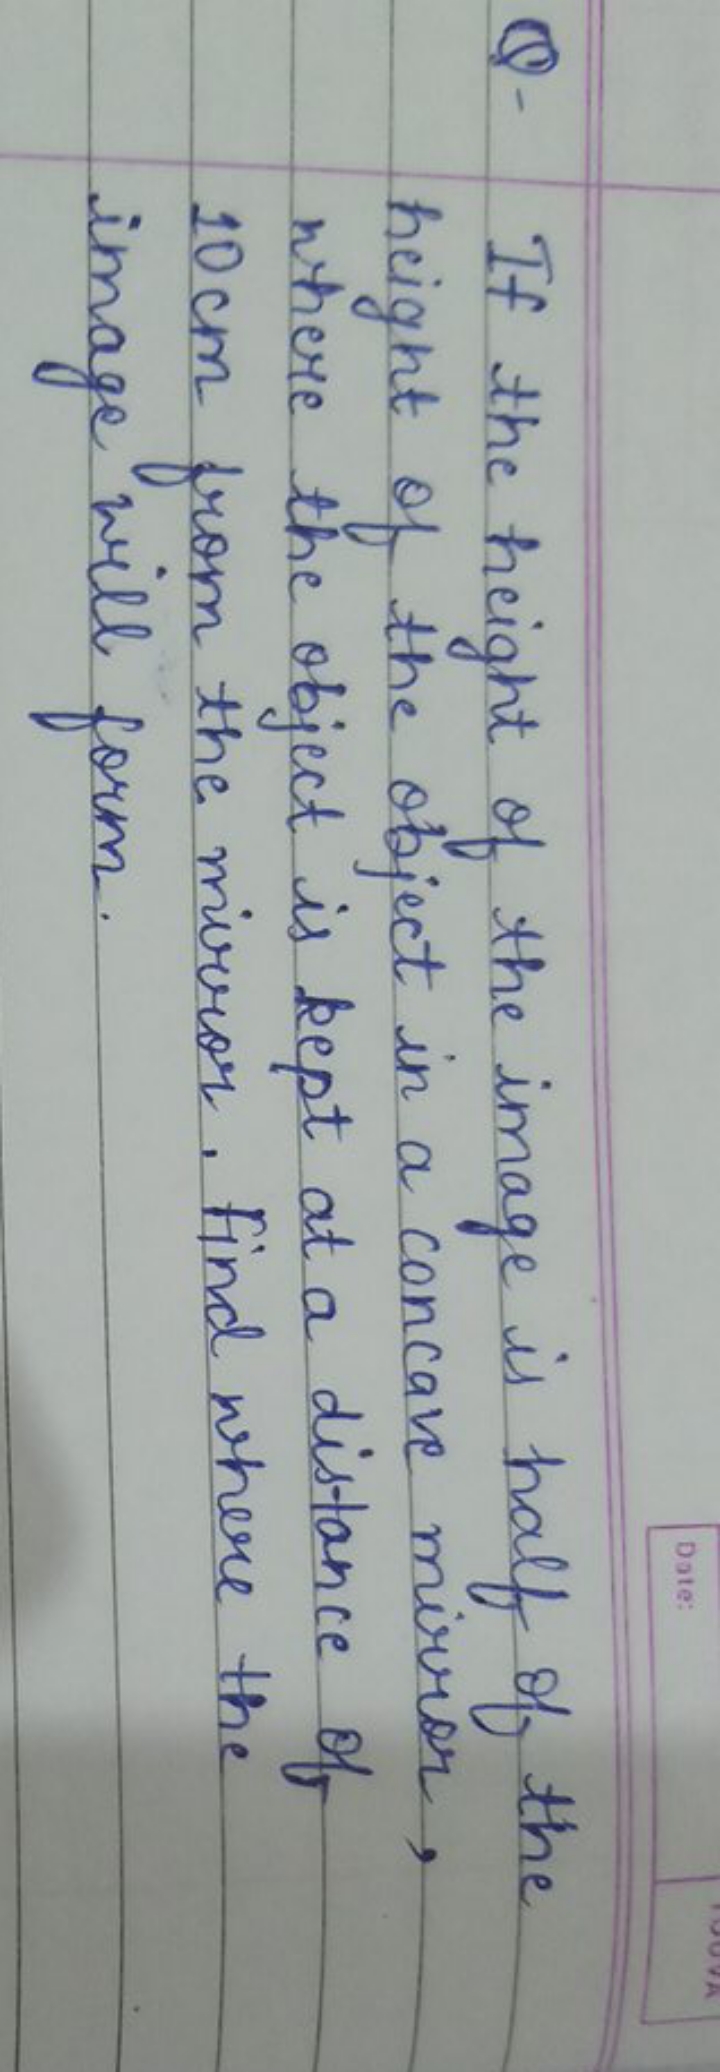 Date:
Q- If the height of the image is half of the
height of the object in a concave mirror,
where the object is kept at a distance of
10cm from the mirror. Find where the
image will form.